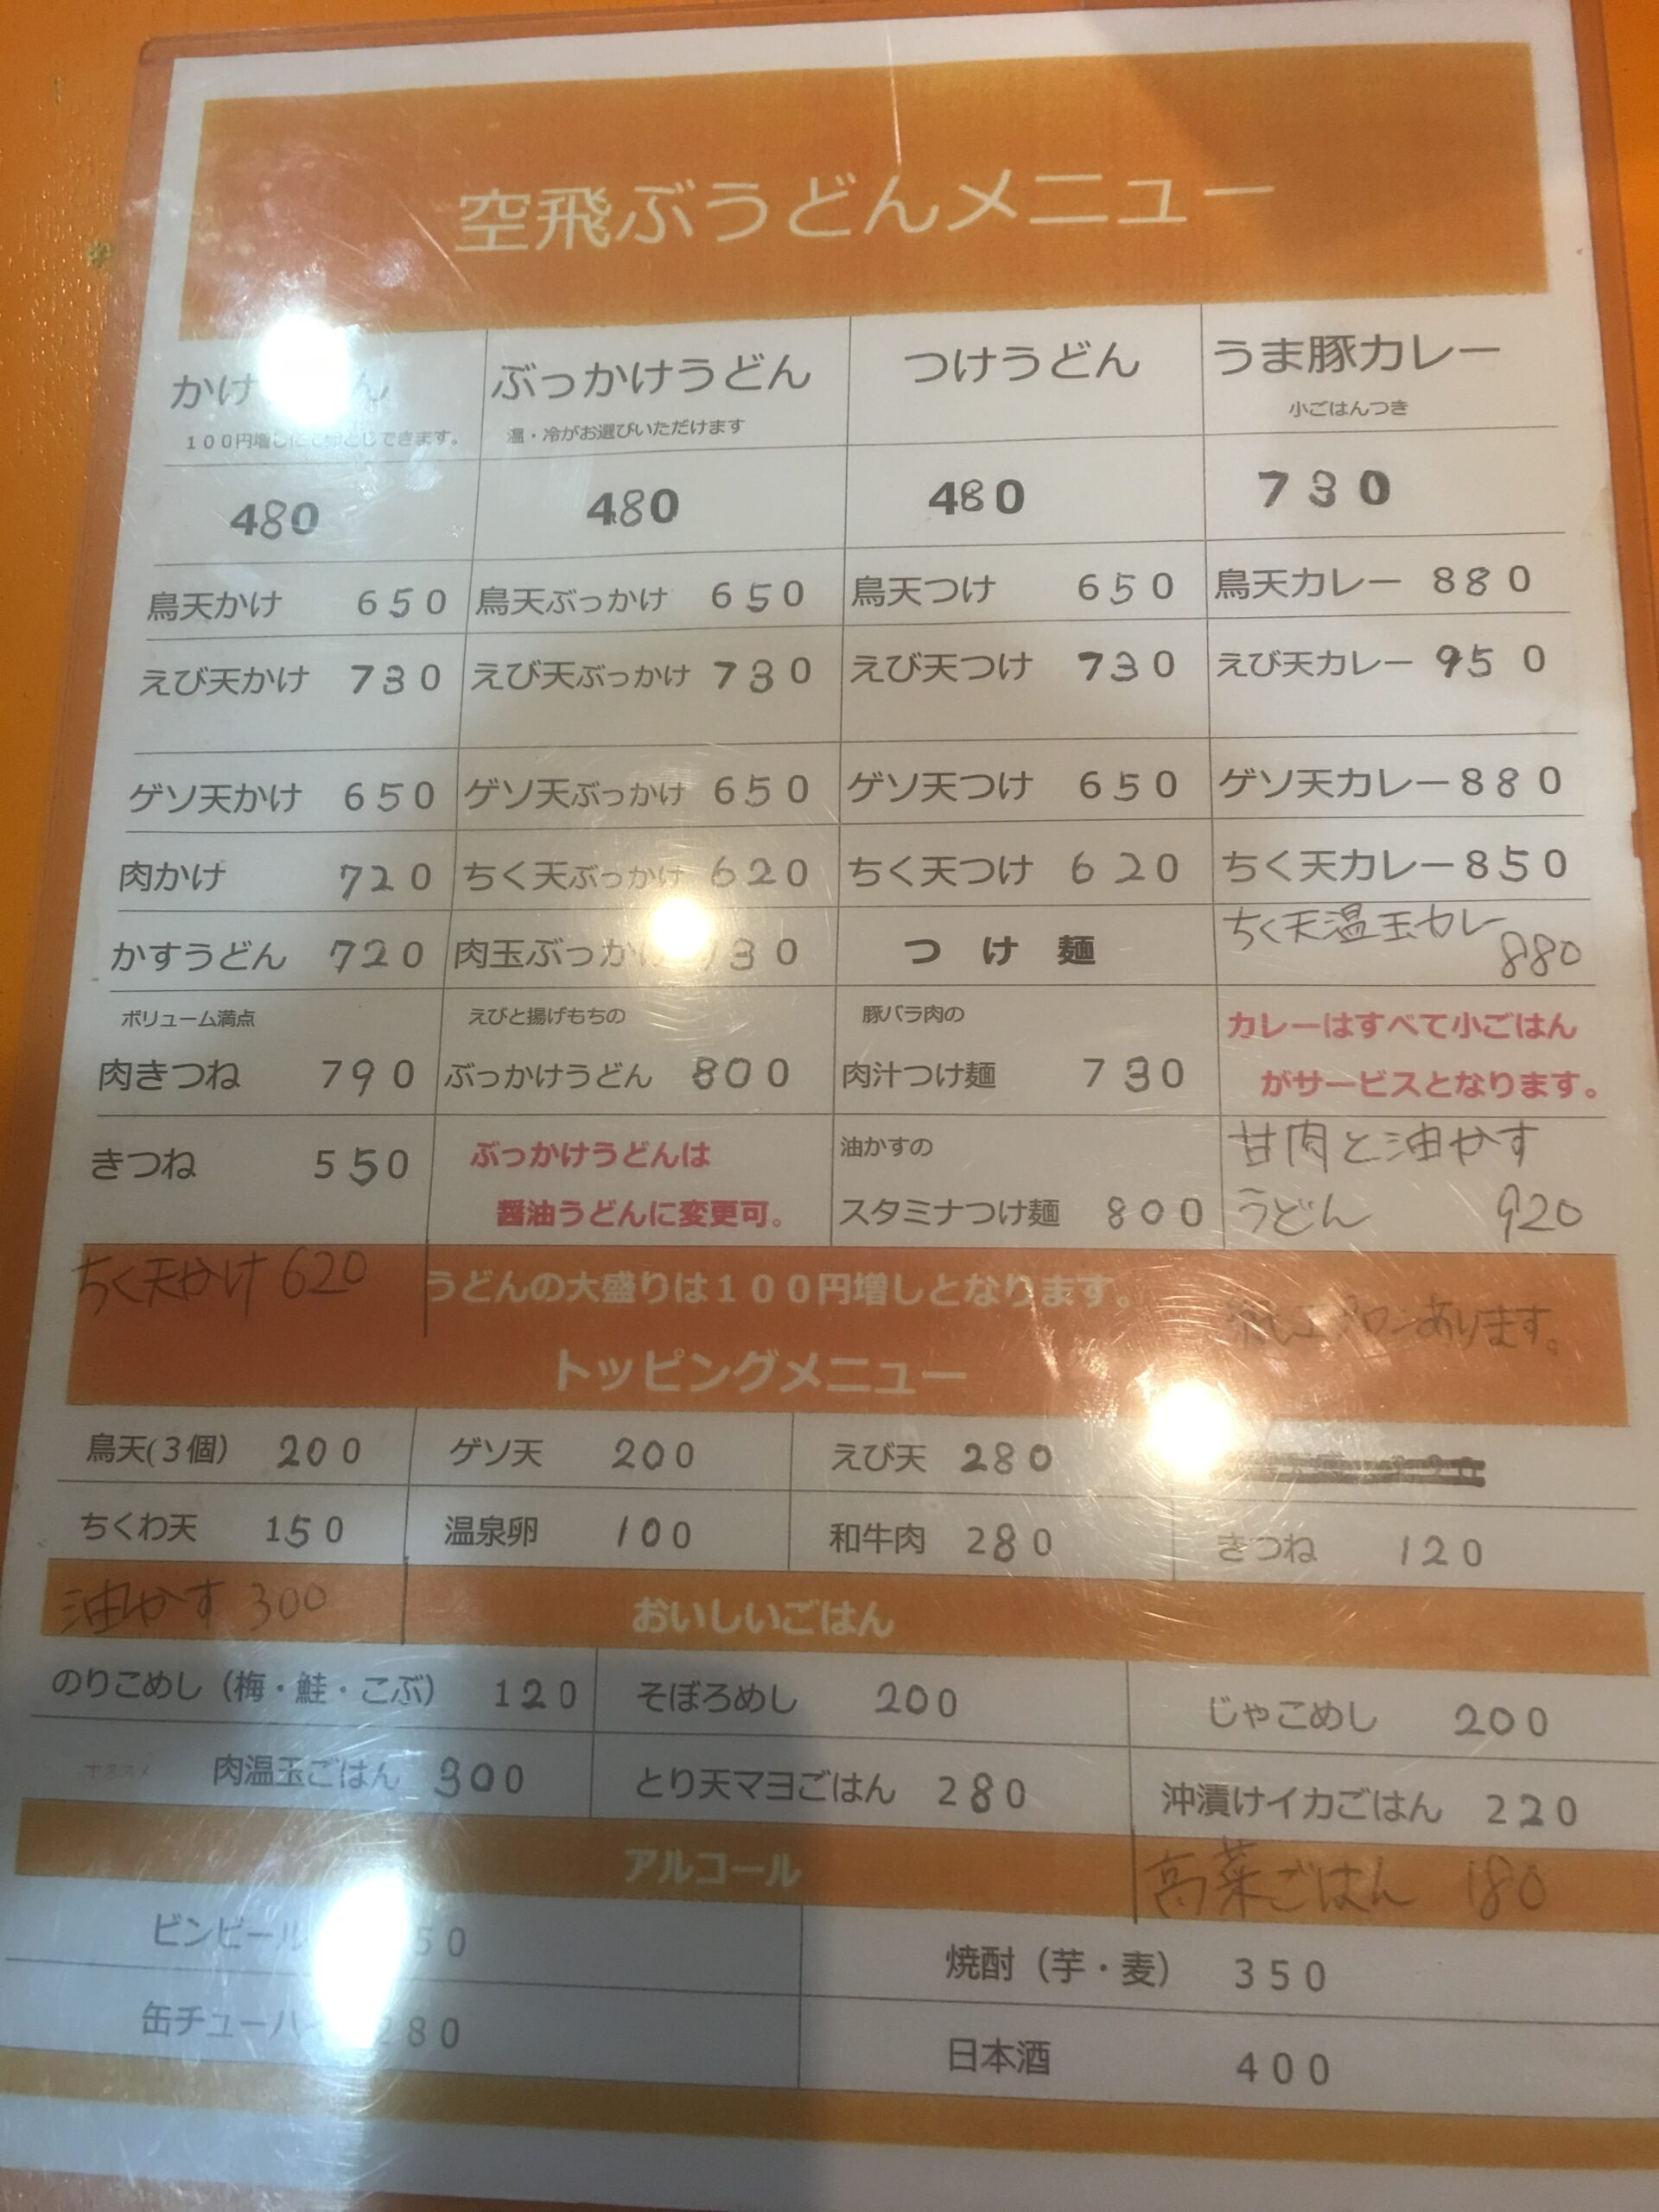 空飛ぶうどんメニュー
かけ ん ぶっかけうどん つけうどん うま豚カレー
100円増しにて とじできます。 温・冷がお選びいただけます 小ごはんつき
480 480 480 730
鳥天かけ 650 鳥天ぶっかけ 650 鳥天つけ 650 鳥天カレー 880
えび天かけ 730 えび天ぶっかけ 730 えび天つけ 730 えび天カレー 950
ゲソ天かけ 650 ゲソ天ぶっかけ 650 ゲソ天つけ 650 ゲソ天カレー 880
肉かけ 720 ちく天ぶっかけ 620 ちく天つけ 620 ちく天カレー 850
かすうどん 720 肉玉ぶっかけ 730 つけ麺 ちく天温玉カレー 880
ボリューム満点 えびと揚げもちの 豚バラ肉の カレーはすべて小ごはん
肉きつね 790 ぶっかけうどん 800 肉汁つけ麺 730 がサービスとなります。
きつね 550 ぶっかけうどんは 油かすの 甘肉と油かす
醤油うどんに変更可。 スタミナつけ麺 800 うどん 920
ちく天かけ 620 うどんの大盛りは100円増しとなります。 エプロンあります。
トッピングメニュー
鳥天(3個) 200 ゲソ天 200 えび天 280
ちくわ天 150 温泉卵 100 和牛肉 280 きつね 120
油かす 300 おいしいごはん
のりこめし（梅・鮭・こぶ） 120 そぼろめし 200 じゃこめし 200
オススメ 肉温玉ごはん 300 とり天マヨごはん 280 沖漬けイカごはん 220
アルコール 高菜ごはん 180
ビンビール 50 焼酎（芋・麦） 350
缶チューハイ 280 日本酒 400